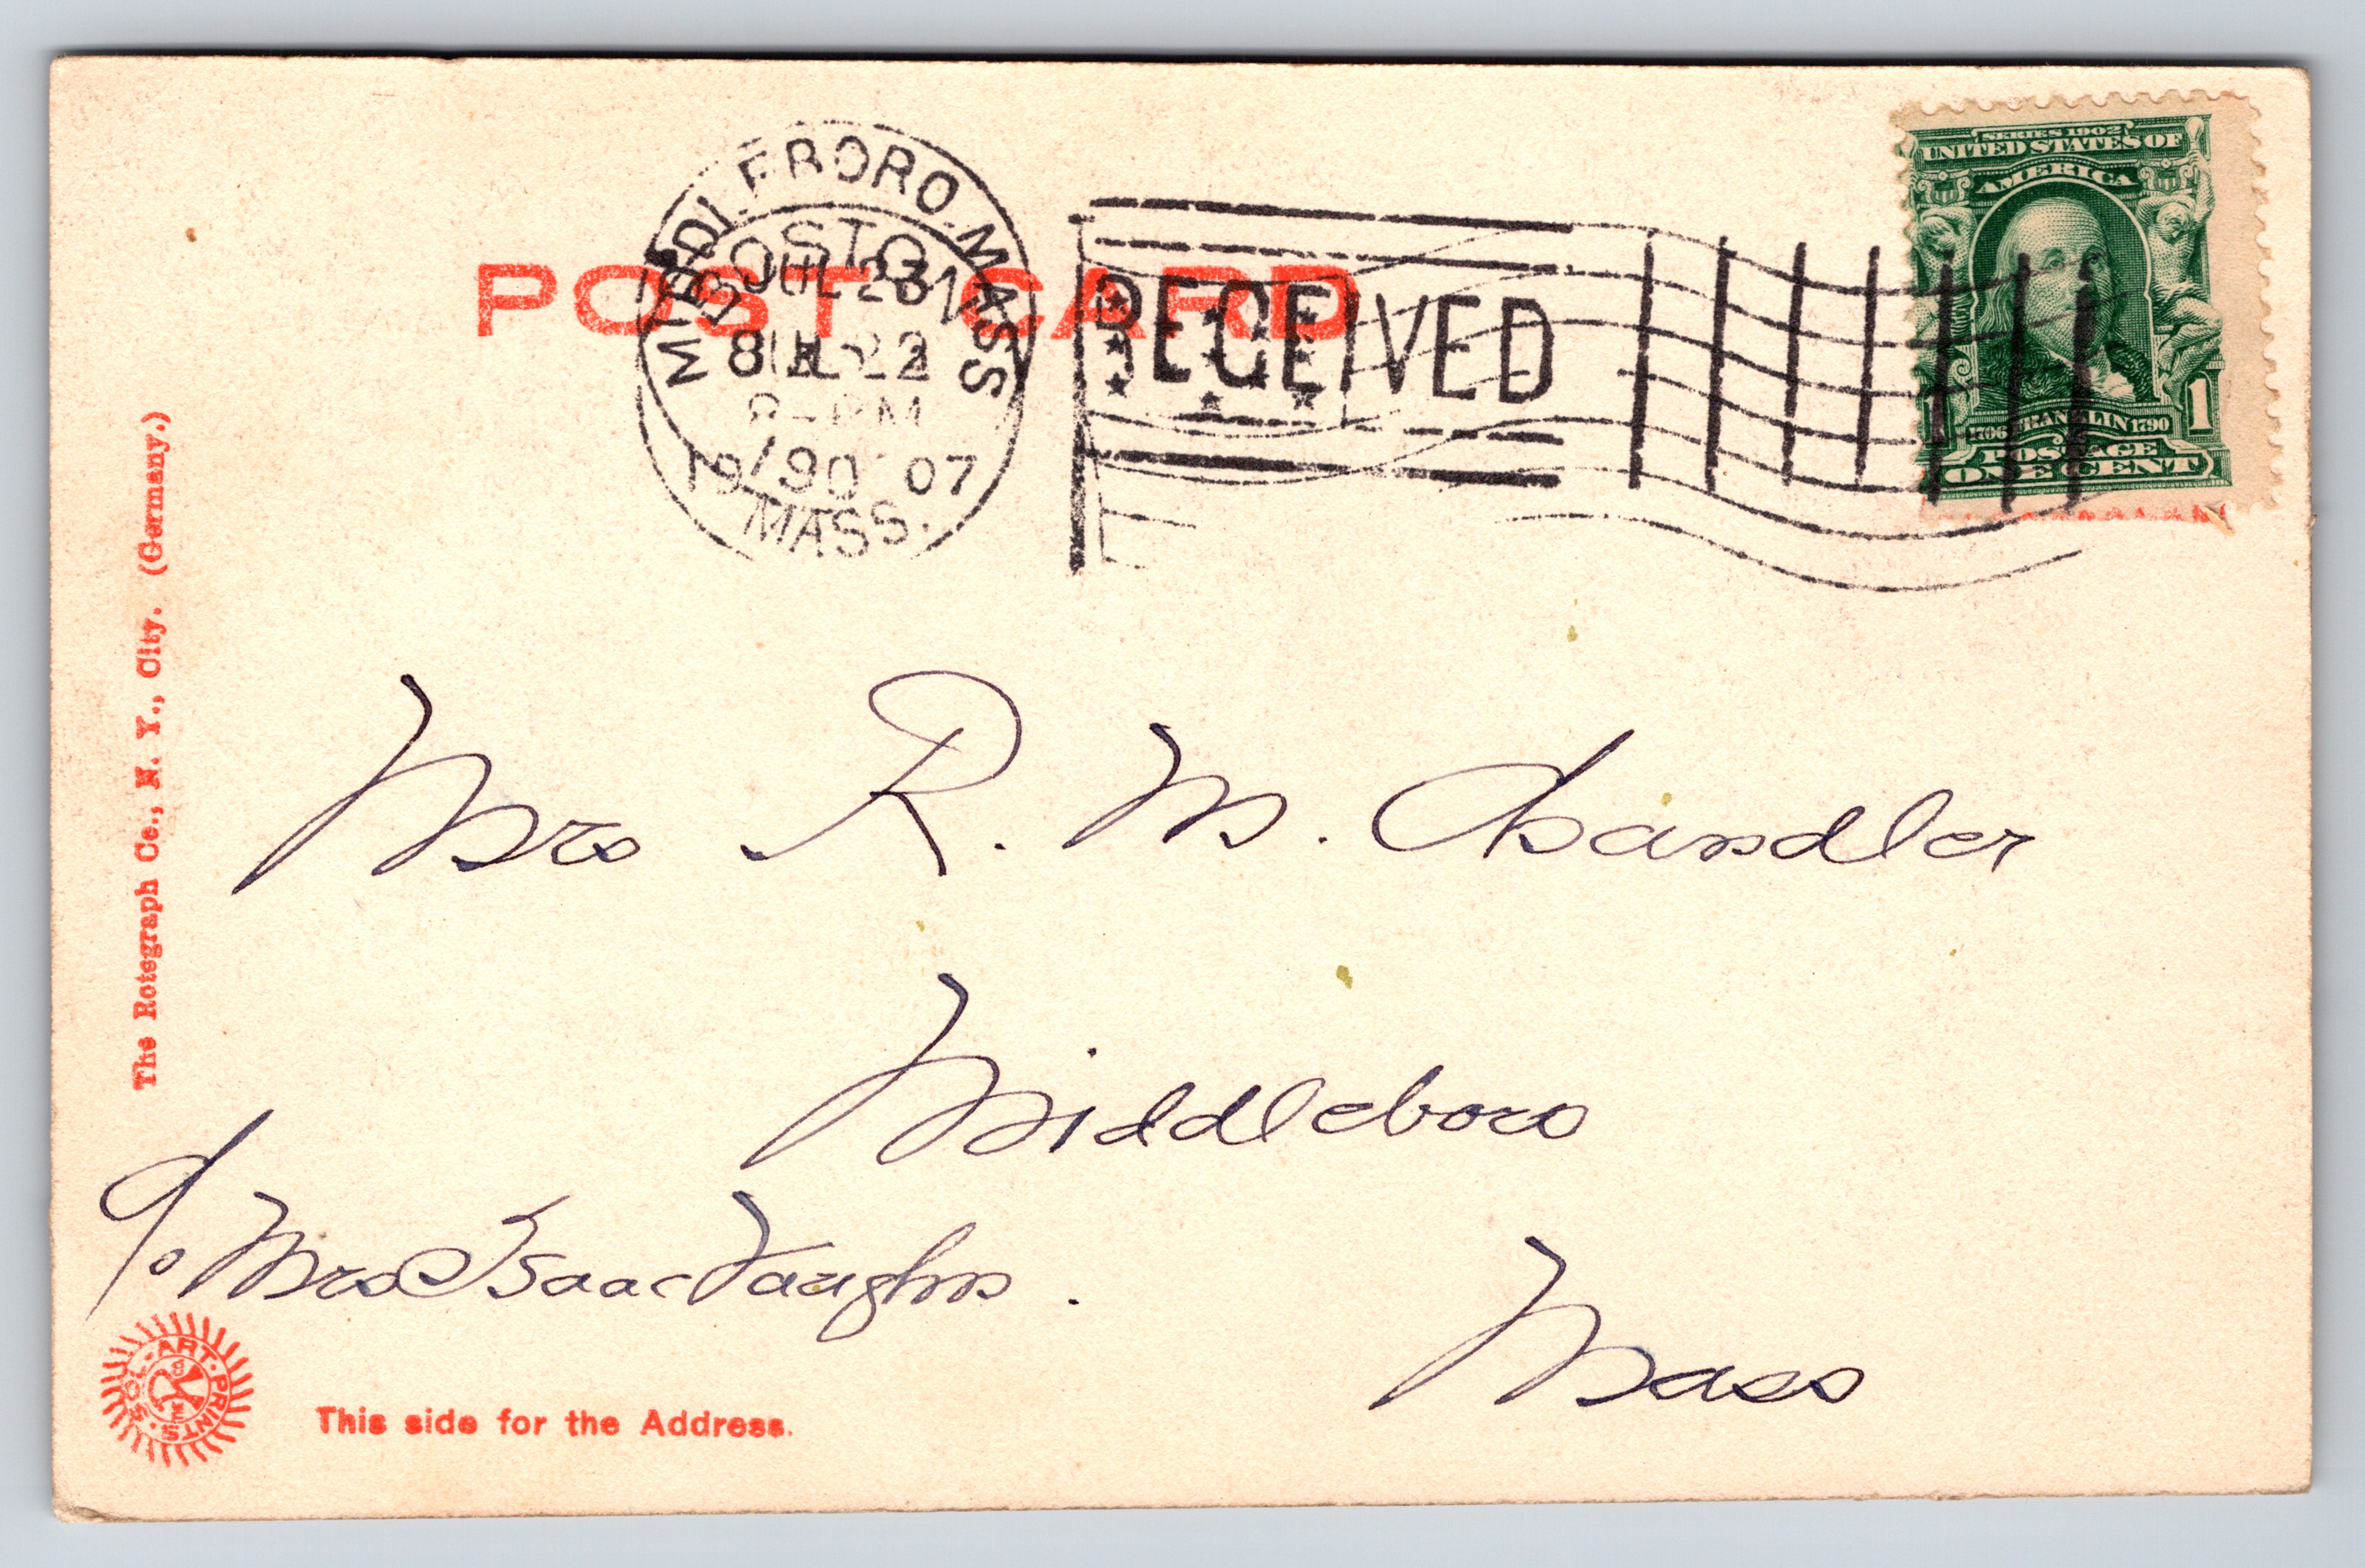 MIDDLEBORO. MASS
BOSTON
JUL 23
8
JUL 22
8-PM
1907
MASS.
RECEIVED
POST CARD
SERIES 1902
UNITED STATES OF
AMERICA
1706 FRANKLIN 1790
1 1
POSTAGE
ONE CENT
The Rotograph Co., N. Y., City. (Germany.)
Mrs R. M. Chandler
Middleboro
Mass
c/o Mrs Isaac Vaughn.
SOL-ART-PRINTS.
This side for the Address.